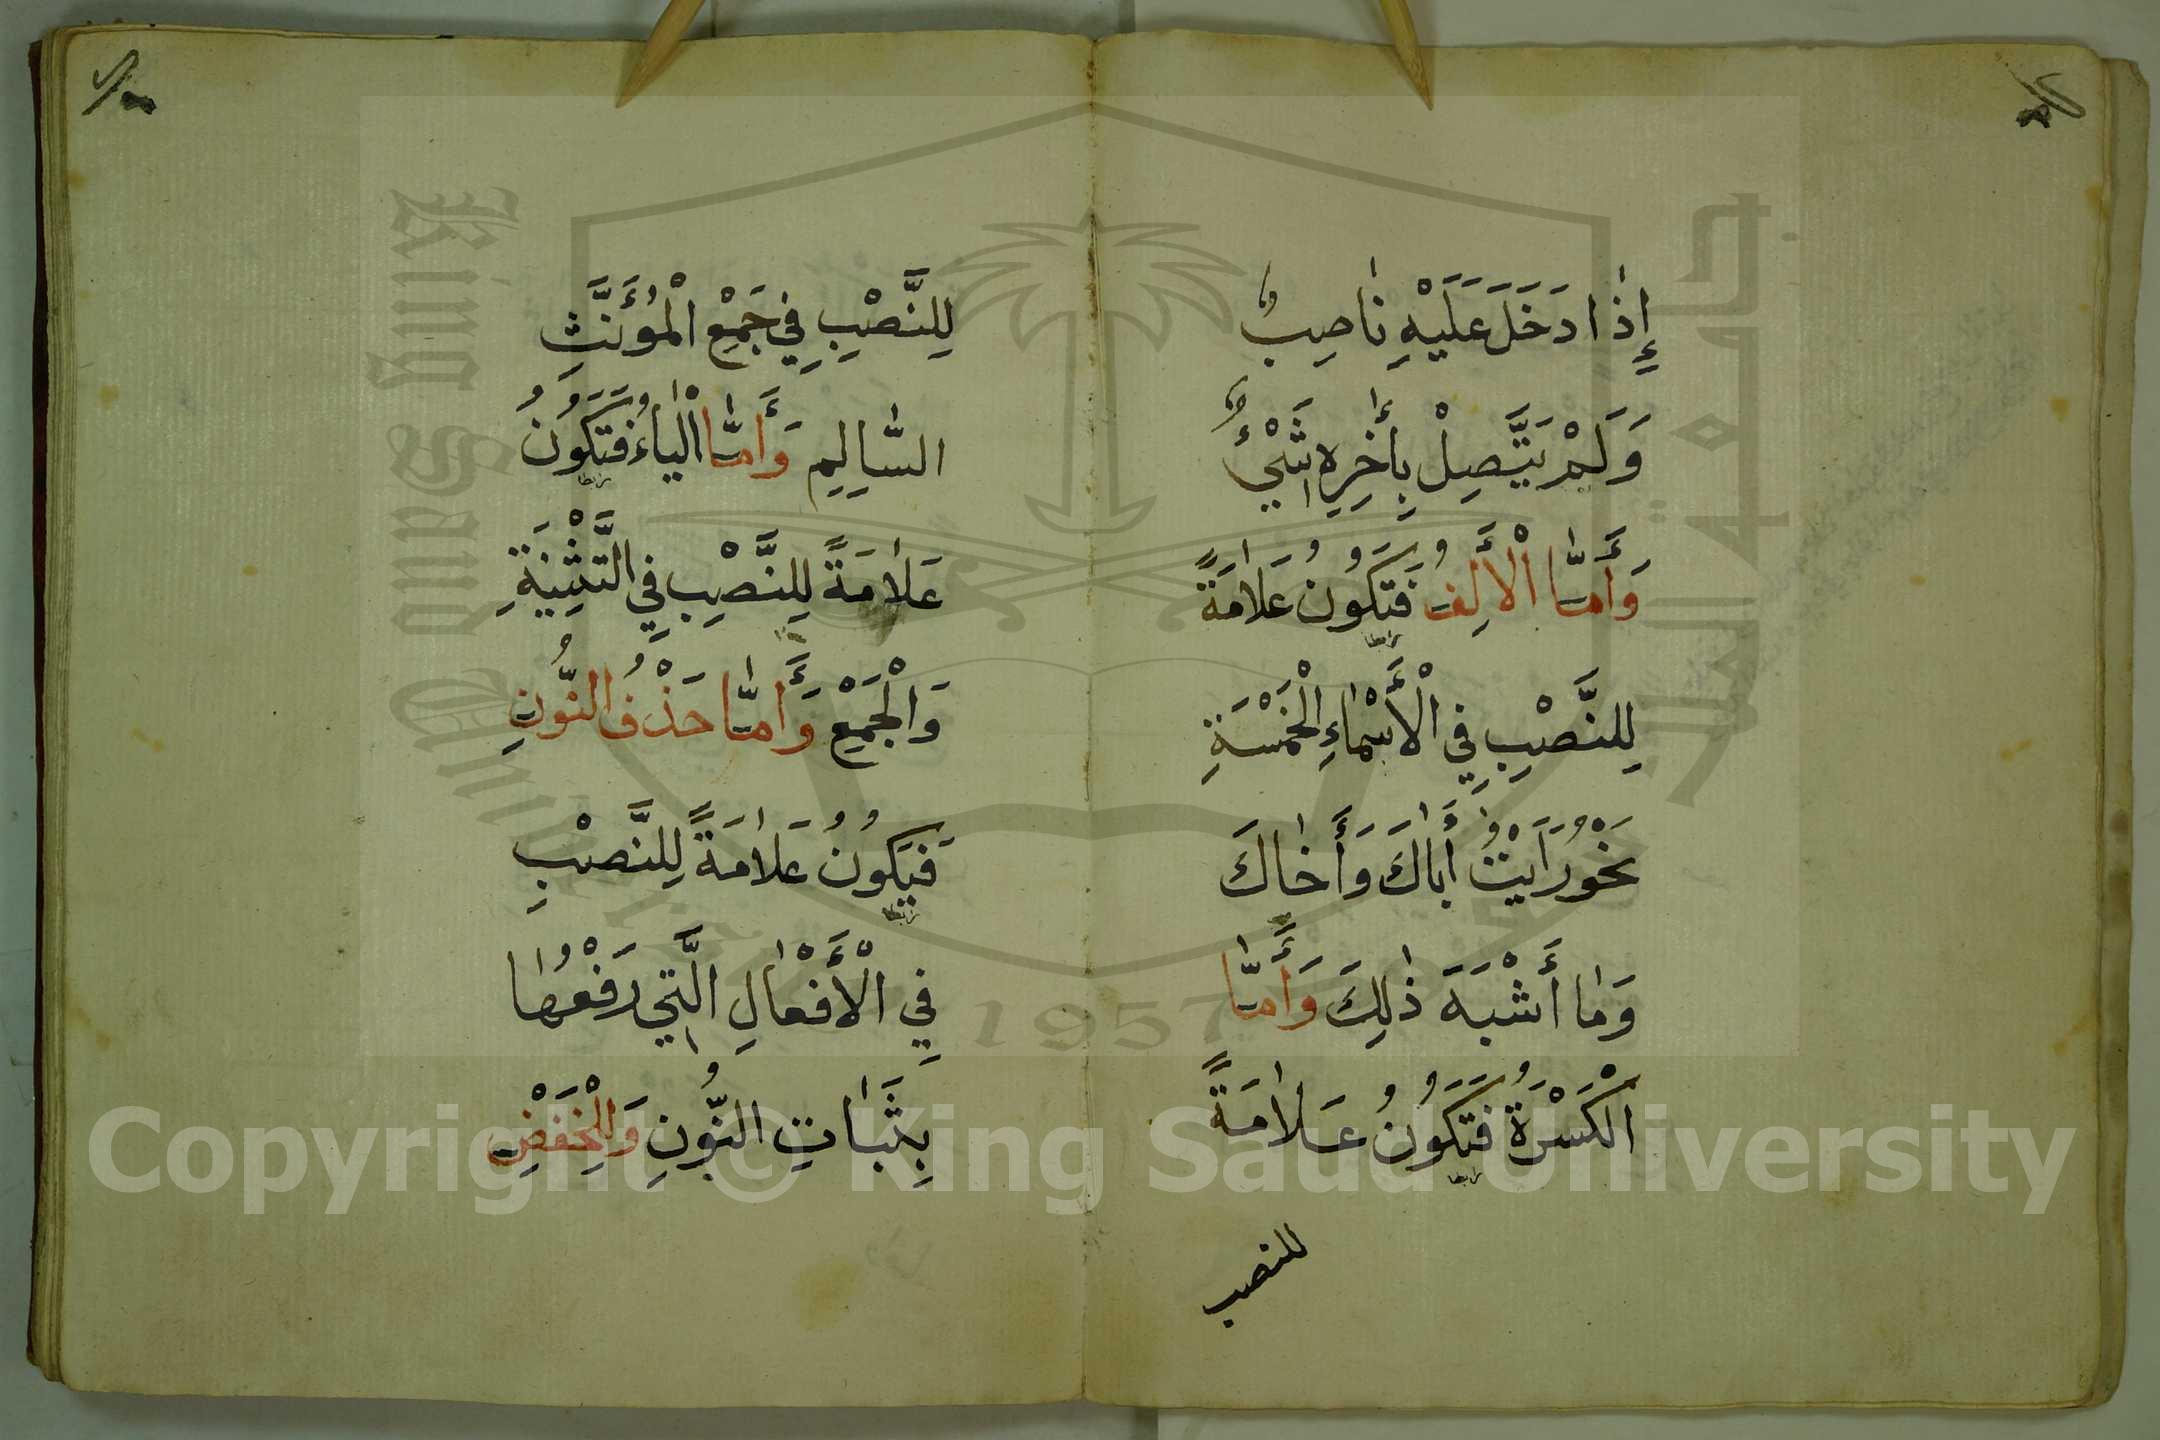 إِذَا دَخَلَ عَلَيْهِ نَاصِبٌ
وَلَمْ يَتَّصِلْ بِأَخِرِهِ شَيْءٌ
وَأَمَّا الْأَلِفُ فَتَكُونُ عَلَامَةً
لِلنَّصْبِ فِي الْأَسْمَاءِ الْخَمْسَةِ
نَحْوُ رَأَيْتُ أَبَاكَ وَأَخَاكَ
وَمَا أَشْبَهَ ذَلِكَ وَأَمَّا
الْكَسْرَةُ فَتَكُونُ عَلَامَةً
للنصب
لِلنَّصْبِ فِي جَمْعِ الْمُؤَنَّثِ
السَّالِمِ وَأَمَّا الْيَاءُ فَتَكُونُ
عَلَامَةً لِلنَّصْبِ فِي التَّثْنِيَةِ
وَالْجَمْعِ وَأَمَّا حَذْفُ النُّونِ
فَيَكُونُ عَلَامَةً لِلنَّصْبِ
فِي الْأَفْعَالِ الَّتِي رَفْعُهَا
بِثَبَاتِ النُّونِ وَلِلْخَفْضِ
King Saud University
جامعة الملك
1957
Copyright © King Saud University